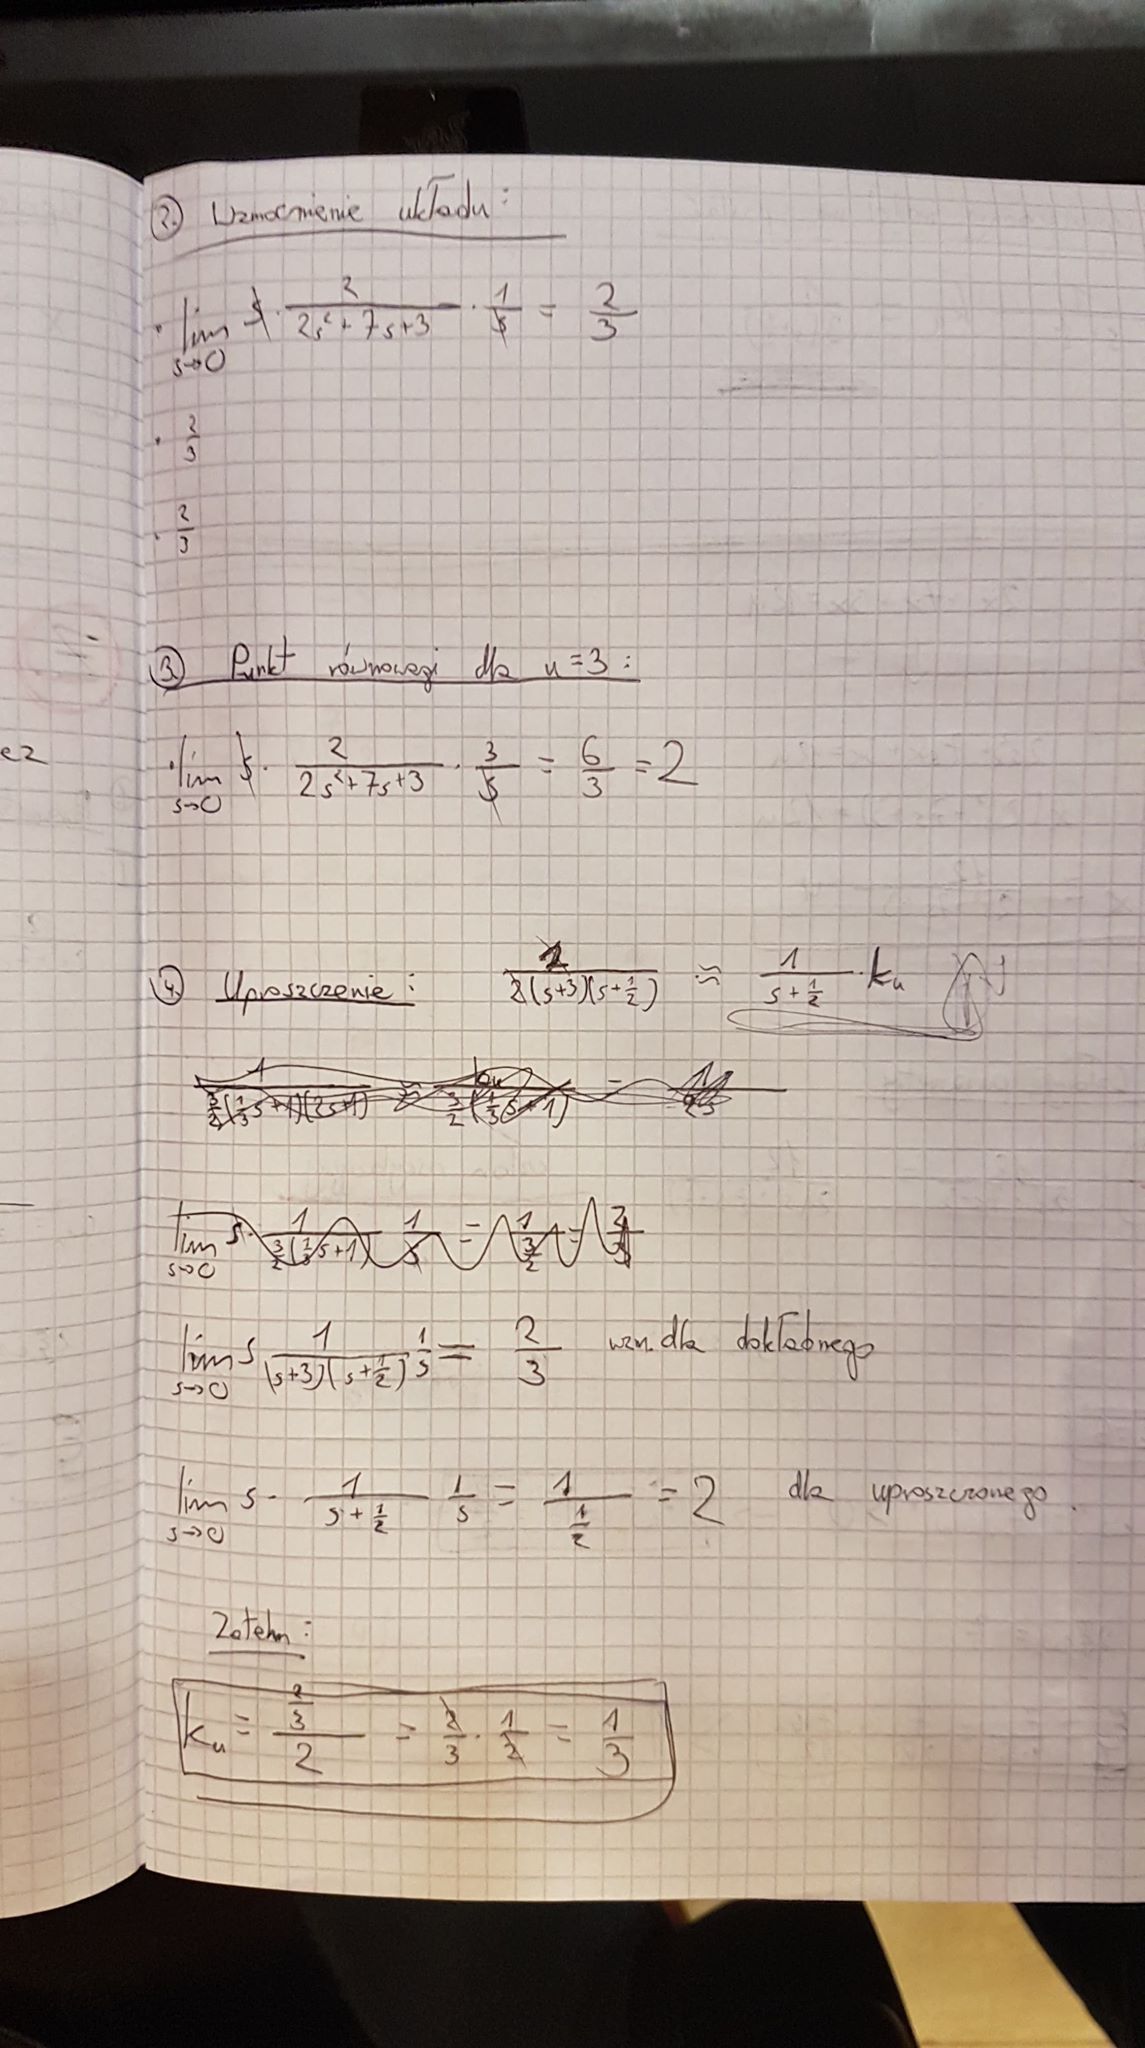 2. Wzmocnienie układu:
· lim s→0 s · 2/(2s²+7s+3) · 1/s = 2/3
· 2/3
· 2/3
3. Punkt równowagi dla u=3:
ez
· lim s→0 s · 2/(2s²+7s+3) · 3/s = 6/3 = 2
4. Uproszczenie: 2/(2(s+3)(s+1/2)) ≈ 1/(s+1/2) · ku
lim s→0 s · 1/(3/2(1/3s+1)) 1/s = 1/(3/2) = 2/3
lim s→0 s 1/((s+3)(s+1/2)) 1/s = 2/3 wzm. dla dokładnego
lim s→0 s · 1/(s+1/2) 1/s = 1/(1/2) = 2 dla uproszczonego.
Zatem:
ku = (2/3)/2 = 2/3 · 1/2 = 1/3